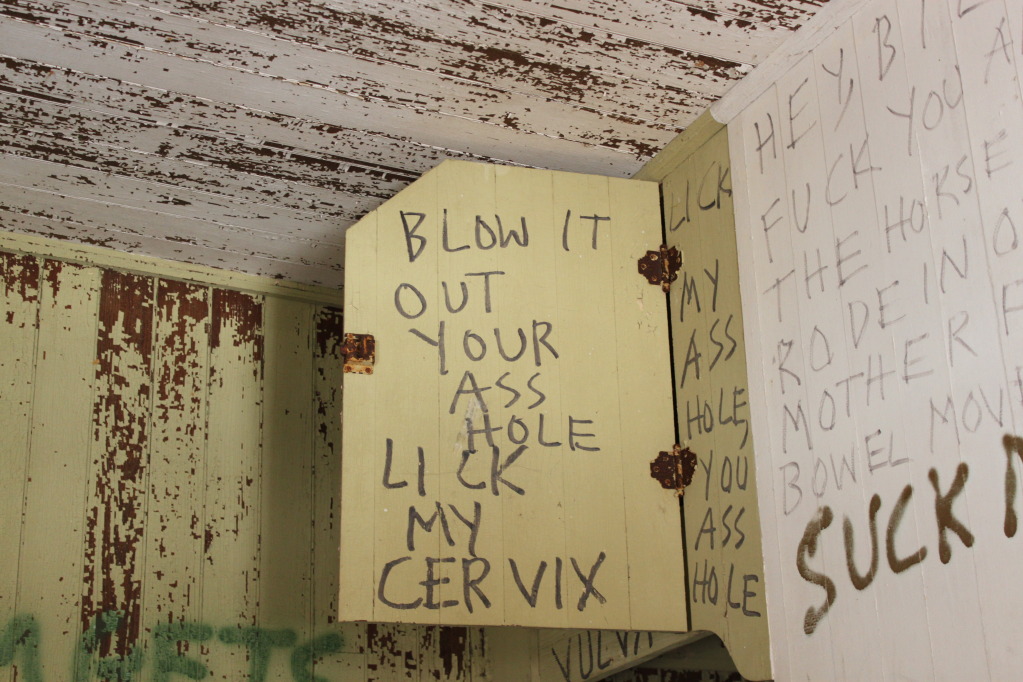 BLOW IT
OUT
YOUR
ASS
HOLE
LICK
MY
CERVIX
LICK
MY
ASS
HOLE,
YOU
ASS
HOLE
HEY,
FUCK YOU
THE HORSE
RODE IN
MOTHER
BOWEL
SUCK
VULVA